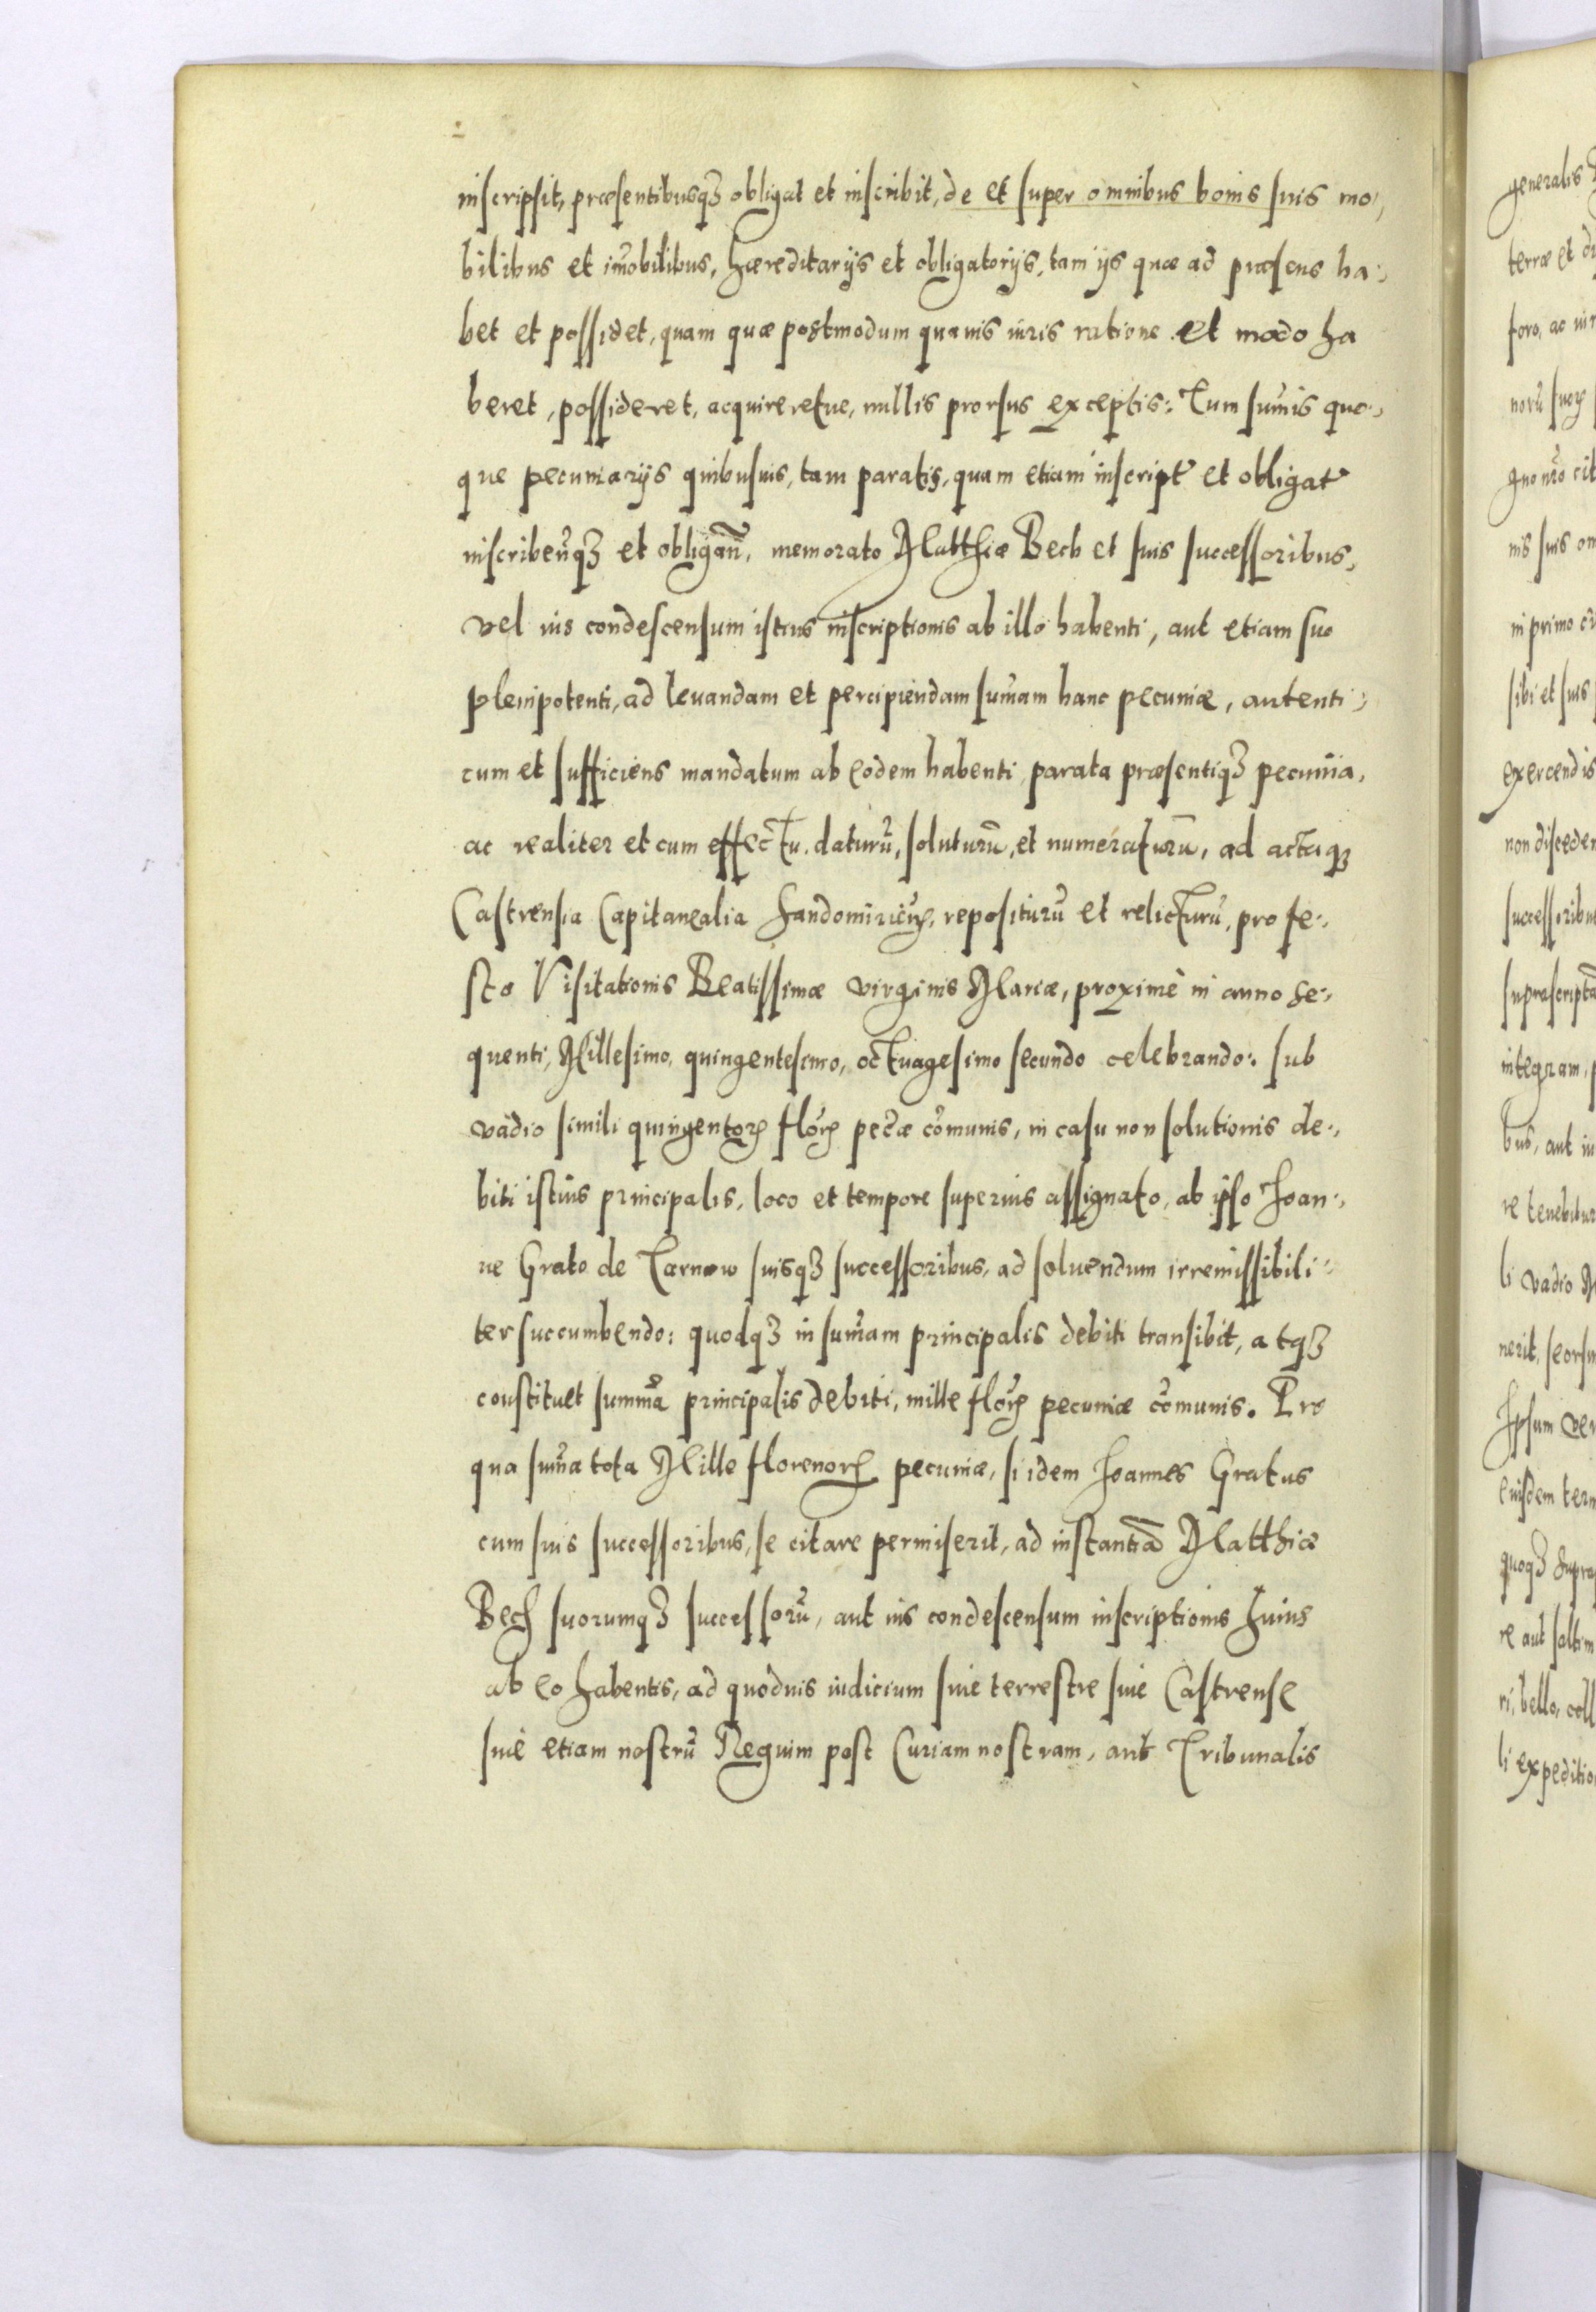 inscripsit, præsentibusqꝫ obligat et inscribit, de et super omnibus bonis suis mo-
bilibus et im̃obilibus, hæreditarijs et obligatorijs, tam ijs quæ ad præsens ha-
bet et possidet, quam quæ postmodum quauis iuris ratione et modo ha
beret, possideret, acquireretue, nullis prorsus exceptis: Tum sum̃is quo-
que pecuniarijs quibusuis, tam paratis, quam etiam inscript̃ et obligat̃
inscribeñqꝫ et obligañ, memorato Matthiæ Bech et suis successoribus,
vel ius condescensum istius inscriptionis ab illo habenti, aut etiam suo
plenipotenti, ad leuandam et percipiendam sum̃am hanc pecuniæ, autenti-
cum et sufficiens mandatum ab eodem habenti parata præsentiqꝫ pecunia,
ac realiter et cum effectu. daturũ, soluturũ, et numeraturũ, ad actaqꝫ
Castrensia Capitanealia Sandomirieñ, repositurũ et relicturũ, pro fe-
sto Visitationis Beatissimæ virginis Mariæ, proximè in anno se-
quenti, Millesimo, quingentesimo, octuagesimo secundo celebrando: sub
vadio simili quingentoꝝ floꝝ pecũæ com̃unis, in casu non solutionis de-
biti istius principalis, loco et tempore superius assignato, ab ipso Joan-
ne Grato de Tarnow suisqꝫ successoribus, ad soluendum irremissibili-
ter succumbendo: quodqꝫ in sum̃am principalis debiti transibit, atqꝫ
constituet summã principalis debiti, mille floꝝ pecuniæ com̃unis. Pro
qua sum̃a tota Mille florenoꝝ pecuniæ, si idem Joannes Gratus
cum suis successoribus, se citare permiserit, ad instantiã Matthiæ
Bech suorumqꝫ successorũ, aut ius condescensum inscriptionis huius
ab eo habentis, ad quoduis iudicium siue terrestre siue Castrense
siue etiam nostrũ Regium post Curiam nostram, aut Tribunalis